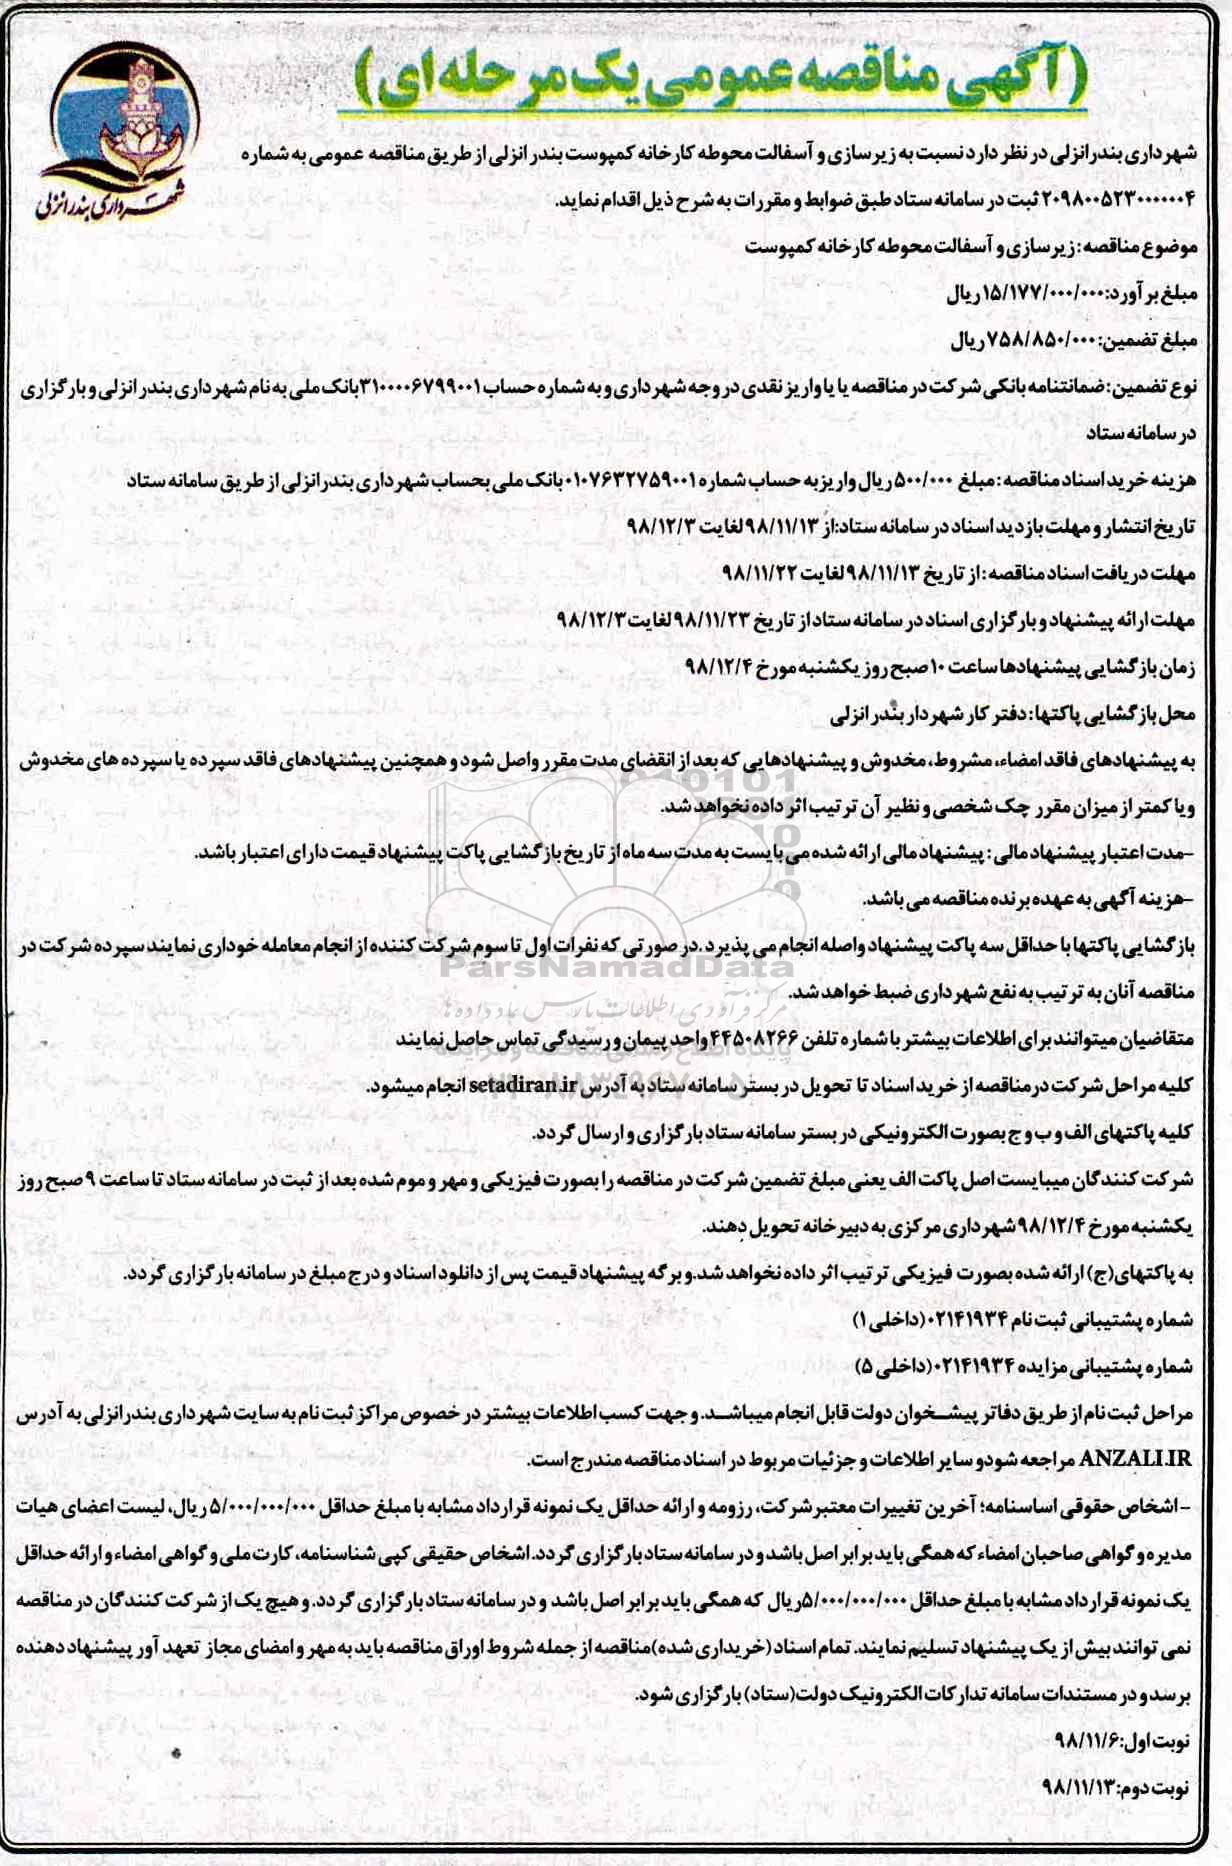 (آگهی مناقصه عمومی یک مرحله ای)
شهرداری بندرانزلی
شهرداری بندرانزلی در نظر دارد نسبت به زیرسازی و آسفالت محوطه کارخانه کمپوست بندر انزلی از طریق مناقصه عمومی به شماره
۲۰۹۸۰۰۵۲۳۰۰۰۰۰۰۴ ثبت در سامانه ستاد طبق ضوابط و مقررات به شرح ذیل اقدام نماید.
موضوع مناقصه: زیرسازی و آسفالت محوطه کارخانه کمپوست
مبلغ برآورد: ۱۵/۱۷۷/۰۰۰/۰۰۰ ریال
مبلغ تضمین: ۷۵۸/۸۵۰/۰۰۰ ریال
نوع تضمین: ضمانتنامه بانکی شرکت در مناقصه یا یا واریز نقدی در وجه شهرداری و به شماره حساب ۳۱۰۰۰۰۶۷۹۹۰۰۱ بانک ملی به نام شهرداری بندر انزلی و بارگزاری
در سامانه ستاد
هزینه خرید اسناد مناقصه: مبلغ ۵۰۰/۰۰۰ ریال واریز به حساب شماره ۰۱۰۷۶۳۲۷۵۹۰۰۱ بانک ملی بحساب شهرداری بندرانزلی از طریق سامانه ستاد
تاریخ انتشار و مهلت بازدید اسناد در سامانه ستاد: از ۹۸/۱۱/۱۳ لغایت ۹۸/۱۲/۳
مهلت دریافت اسناد مناقصه: از تاریخ ۹۸/۱۱/۱۳ لغایت ۹۸/۱۱/۲۲
مهلت ارائه پیشنهاد و بارگزاری اسناد در سامانه ستاد از تاریخ ۹۸/۱۱/۲۳ لغایت ۹۸/۱۲/۳
زمان بازگشایی پیشنهادها ساعت ۱۰ صبح روز یکشنبه مورخ ۹۸/۱۲/۴
محل بازگشایی پاکتها: دفتر کار شهردار بندر انزلی
به پیشنهادهای فاقد امضاء، مشروط، مخدوش و پیشنهادهایی که بعد از انقضای مدت مقرر واصل شود و همچنین پیشنهادهای فاقد سپرده یا سپرده های مخدوش
ویا کمتر از میزان مقرر چک شخصی و نظیر آن ترتیب اثر داده نخواهد شد.
-مدت اعتبار پیشنهاد مالی: پیشنهاد مالی ارائه شده می بایست به مدت سه ماه از تاریخ بازگشایی پاکت پیشنهاد قیمت دارای اعتبار باشد.
-هزینه آگهی به عهده برنده مناقصه می باشد.
بازگشایی پاکتها با حداقل سه پاکت پیشنهاد واصله انجام می پذیرد. در صورتی که نفرات اول تا سوم شرکت کننده از انجام معامله خوداری نمایند سپرده شرکت در
ParsNamadData
مناقصه آنان به ترتیب به نفع شهرداری ضبط خواهد شد.
مرکز فرآوری اطلاعات پارس نماد داده ها
متقاضیان میتوانند برای اطلاعات بیشتر با شماره تلفن ۴۴۵۰۸۲۶۶ واحد پیمان و رسیدگی تماس حاصل نمایند
کلیه مراحل شرکت درمناقصه از خرید اسناد تا تحویل در بستر سامانه ستاد به آدرس setadiran.ir انجام میشود.
کلیه پاکتهای الف و ب و ج بصورت الکترونیکی در بستر سامانه ستاد بارگزاری و ارسال گردد.
شرکت کنندگان میبایست اصل پاکت الف یعنی مبلغ تضمین شرکت در مناقصه را بصورت فیزیکی و مهر و موم شده بعد از ثبت در سامانه ستاد تا ساعت ۹ صبح روز
یکشنبه مورخ ۹۸/۱۲/۴ شهرداری مرکزی به دبیرخانه تحویل دهند.
به پاکتهای (ج) ارائه شده بصورت فیزیکی ترتیب اثر داده نخواهد شد. و برگه پیشنهاد قیمت پس از دانلود اسناد و درج مبلغ در سامانه بارگزاری گردد.
شماره پشتیبانی ثبت نام ۰۲۱۴۱۹۳۴ (داخلی ۱)
شماره پشتیبانی مزایده ۰۲۱۴۱۹۳۴ (داخلی ۵)
مراحل ثبت نام از طریق دفاتر پیشخوان دولت قابل انجام میباشد. و جهت کسب اطلاعات بیشتر در خصوص مراکز ثبت نام به سایت شهرداری بندرانزلی به آدرس
ANZALI.IR مراجعه شود و سایر اطلاعات و جزئیات مربوط در اسناد مناقصه مندرج است.
-اشخاص حقوقی اساسنامه؛ آخرین تغییرات معتبر شرکت، رزومه و ارائه حداقل یک نمونه قرارداد مشابه با مبلغ حداقل ۵/۰۰۰/۰۰۰/۰۰۰ ریال، لیست اعضای هیات
مدیره و گواهی صاحبان امضاء که همگی باید برابر اصل باشد و در سامانه ستاد بارگزاری گردد. اشخاص حقیقی کپی شناسنامه، کارت ملی و گواهی امضاء و ارائه حداقل
یک نمونه قرارداد مشابه با مبلغ حداقل ۵/۰۰۰/۰۰۰/۰۰۰ ریال که همگی باید برابر اصل باشد و در سامانه ستاد بارگزاری گردد. و هیچ یک از شرکت کنندگان در مناقصه
نمی توانند بیش از یک پیشنهاد تسلیم نمایند. تمام اسناد (خریداری شده) مناقصه از جمله شروط اوراق مناقصه باید به مهر و امضای مجاز تعهد آور پیشنهاد دهنده
برسد و در مستندات سامانه تدارکات الکترونیک دولت (ستاد) بارگزاری شود.
نوبت اول: ۹۸/۱۱/۶
نوبت دوم: ۹۸/۱۱/۱۳